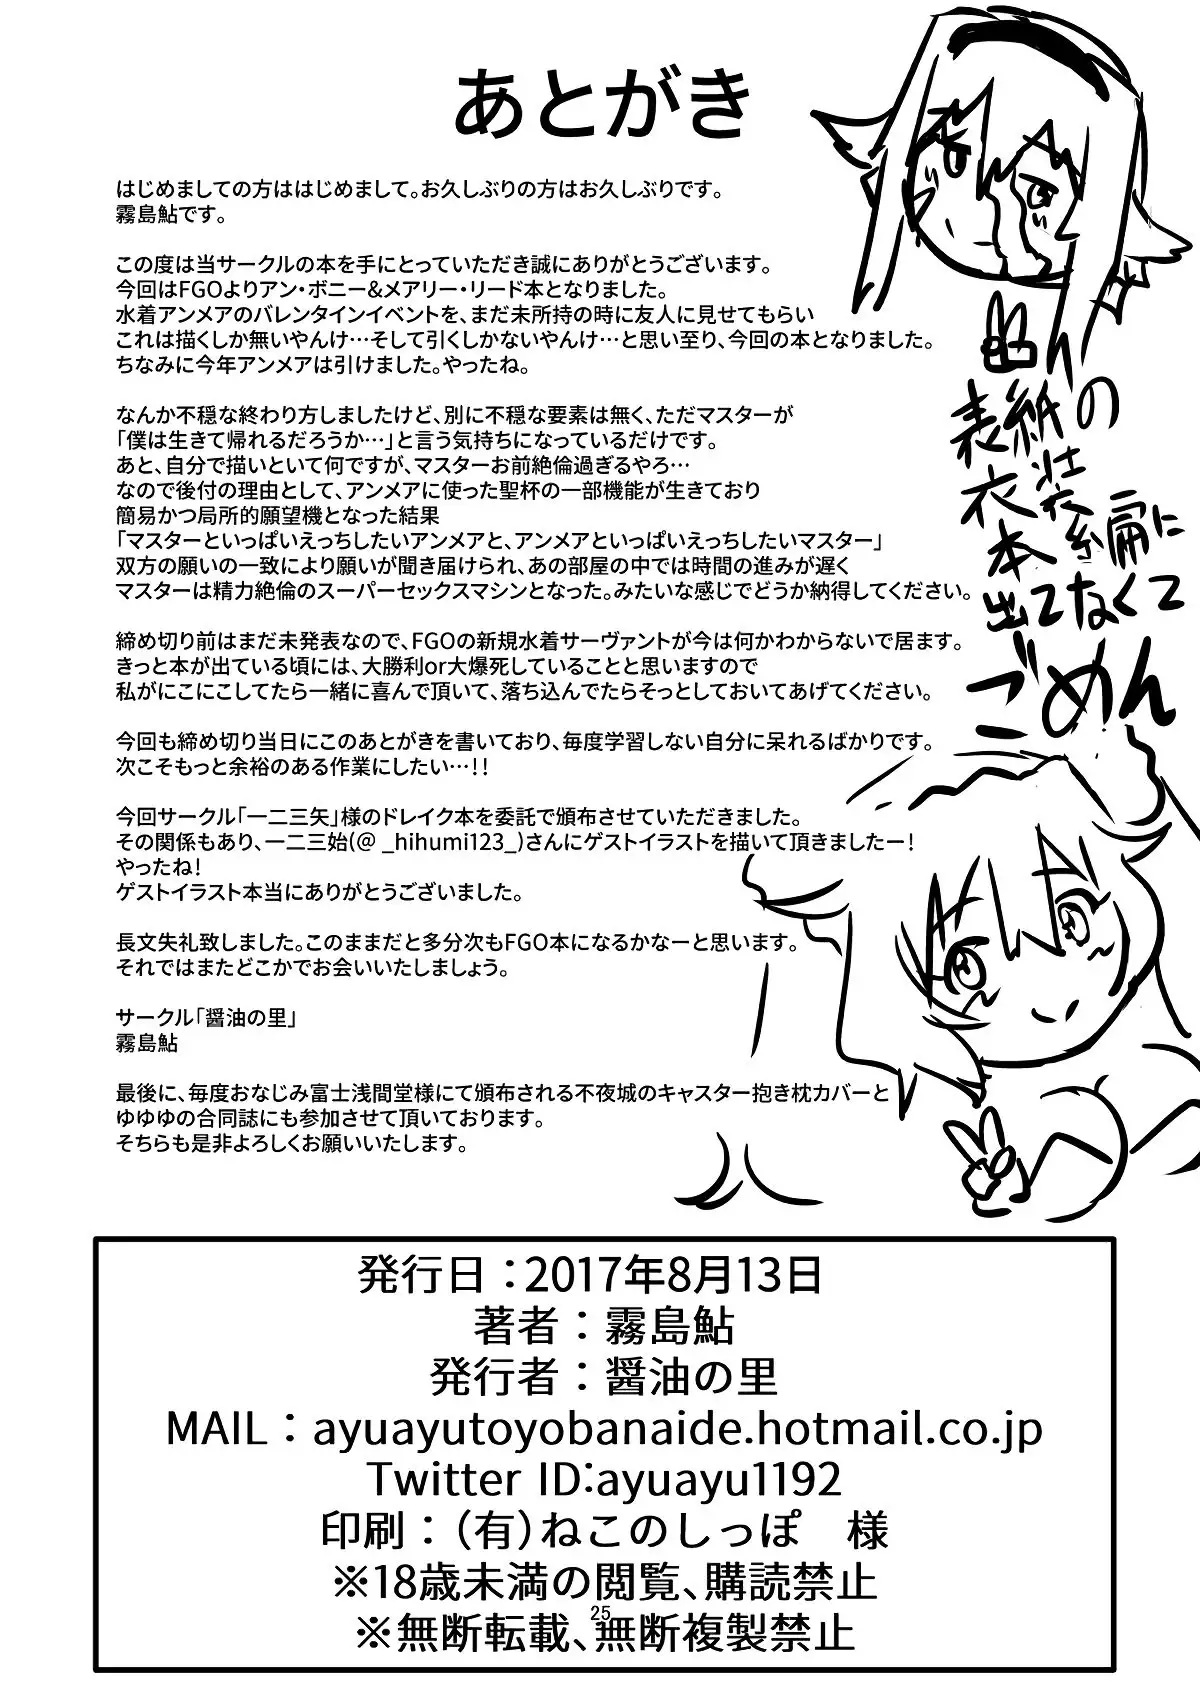 あとがき
はじめましての方ははじめまして。お久しぶりの方はお久しぶりです。
霧島鮎です。
この度は当サークルの本を手にとっていただき誠にありがとうございます。
今回はFGOよりアン・ボニー&メアリー・リード本となりました。
水着アンメアのバレンタインイベントを、まだ未所持の時に友人に見せてもらい
これは描くしか無いやんけ…そして引くしかないやんけ…と思い至り、今回の本となりました。
ちなみに今年アンメアは引けました。やったね。
なんか不穏な終わり方しましたけど、別に不穏な要素は無く、ただマスターが
「僕は生きて帰れるだろうか…」と言う気持ちになっているだけです。
あと、自分で描いといて何ですが、マスターお前絶倫過ぎるやろ…
なので後付の理由として、アンメアに使った聖杯の一部機能が生きており
簡易かつ局所的願望機となった結果
「マスターといっぱいえっちしたいアンメアと、アンメアといっぱいえっちしたいマスター」
双方の願いの一致により願いが聞き届けられ、あの部屋の中では時間の進みが遅く
マスターは精力絶倫のスーパーセックスマシンとなった。みたいな感じでどうか納得してください。
締め切り前はまだ未発表なので、FGOの新規水着サーヴァントが今は何かわからないで居ます。
きっと本が出ている頃には、大勝利or大爆死していることと思いますので
私がにこにこしてたら一緒に喜んで頂いて、落ち込んでたらそっとしておいてあげてください。
今回も締め切り当日にこのあとがきを書いており、毎度学習しない自分に呆れるばかりです。
次こそもっと余裕のある作業にしたい…!!
今回サークル「一二三矢」様のドレイク本を委託で頒布させていただきました。
その関係もあり、一二三始(@ _hihumi123_)さんにゲストイラストを描いて頂きましたー!
やったね!
ゲストイラスト本当にありがとうございました。
長文失礼致しました。このままだと多分次もFGO本になるかなーと思います。
それではまたどこかでお会いいたしましょう。
サークル「醤油の里」
霧島鮎
最後に、毎度おなじみ富士浅間堂様にて頒布される不夜城のキャスター抱き枕カバーと
ゆゆゆの合同誌にも参加させて頂いております。
そちらも是非よろしくお願いいたします。
表紙の
衣装
本編に
出てなくて
ごめん
発行日：2017年8月13日
著者：霧島鮎
発行者：醤油の里
MAIL：ayuayutoyobanaide.hotmail.co.jp
Twitter ID:ayuayu1192
印刷：(有)ねこのしっぽ　様
※18歳未満の閲覧、購読禁止
※無断転載、無断複製禁止
25